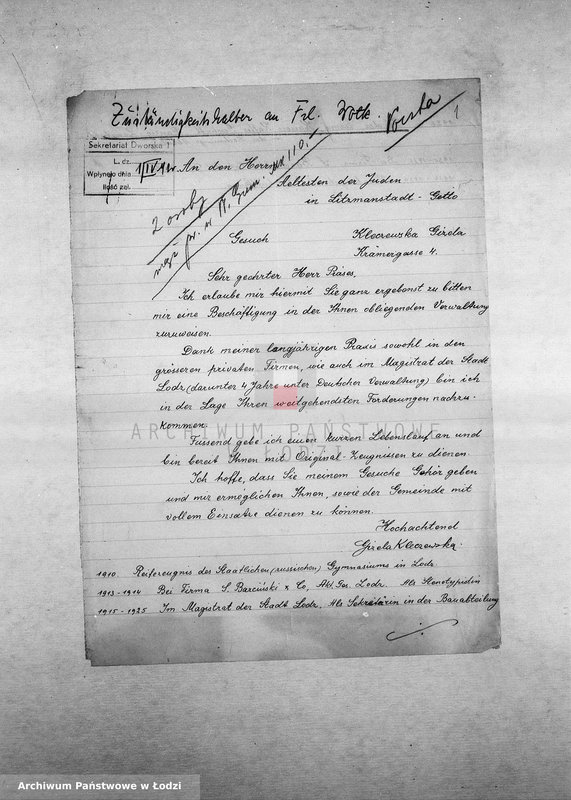 Zuständigkeitshalber an Frl. Wolk.
1
Sekretariat Dworska 1
L. dz.
Wpłynęło dnia 1/IV
Ilość zał.
2 osoby
An den Herrn
Aeltesten der Juden
in Litzmanstadt - Getto
Gesuch
Kleczewska Gizela
Krämergasse 4.
Sehr geehrter Herr Präses,
Ich erlaube mir hiermit Sie ganz ergebenst zu bitten
mir eine Beschäftigung in der Ihnen obliegenden Verwaltung
zuzuweisen.
Dank meiner langjährigen Praxis sowohl in den
grösseren privaten Firmen, wie auch im Magistrat der Stadt
Lodz (darunter 4 Jahre unter Deutscher Verwaltung) bin ich
in der Lage Ihren weitgehendsten Forderungen nachzu-
kommen.
Fussend gebe ich einen kurzen Lebenslauf an und
bin bereit Ihnen mit Original-Zeugnissen zu dienen.
Ich hoffe, dass Sie meinem Gesuche Gehör geben
und mir ermöglichen Ihnen, sowie der Gemeinde mit
vollem Einsatze dienen zu können.
Hochachtend
Gizela Kleczewska.
1910. Reifezeugnis des Staatlichen (russischen) Gymnasiums in Lodz
1913-1914 Bei Firma S. Barciński & Co, Akt. Ges. Lodz. Als Stenotypistin
1915-1925 Im Magistrat der Stadt Lodz. Als Sekretärin in der Bauabteilung
ARCHIWUM PAŃSTWOWE
W ŁODZI
Archiwum Państwowe w Łodzi